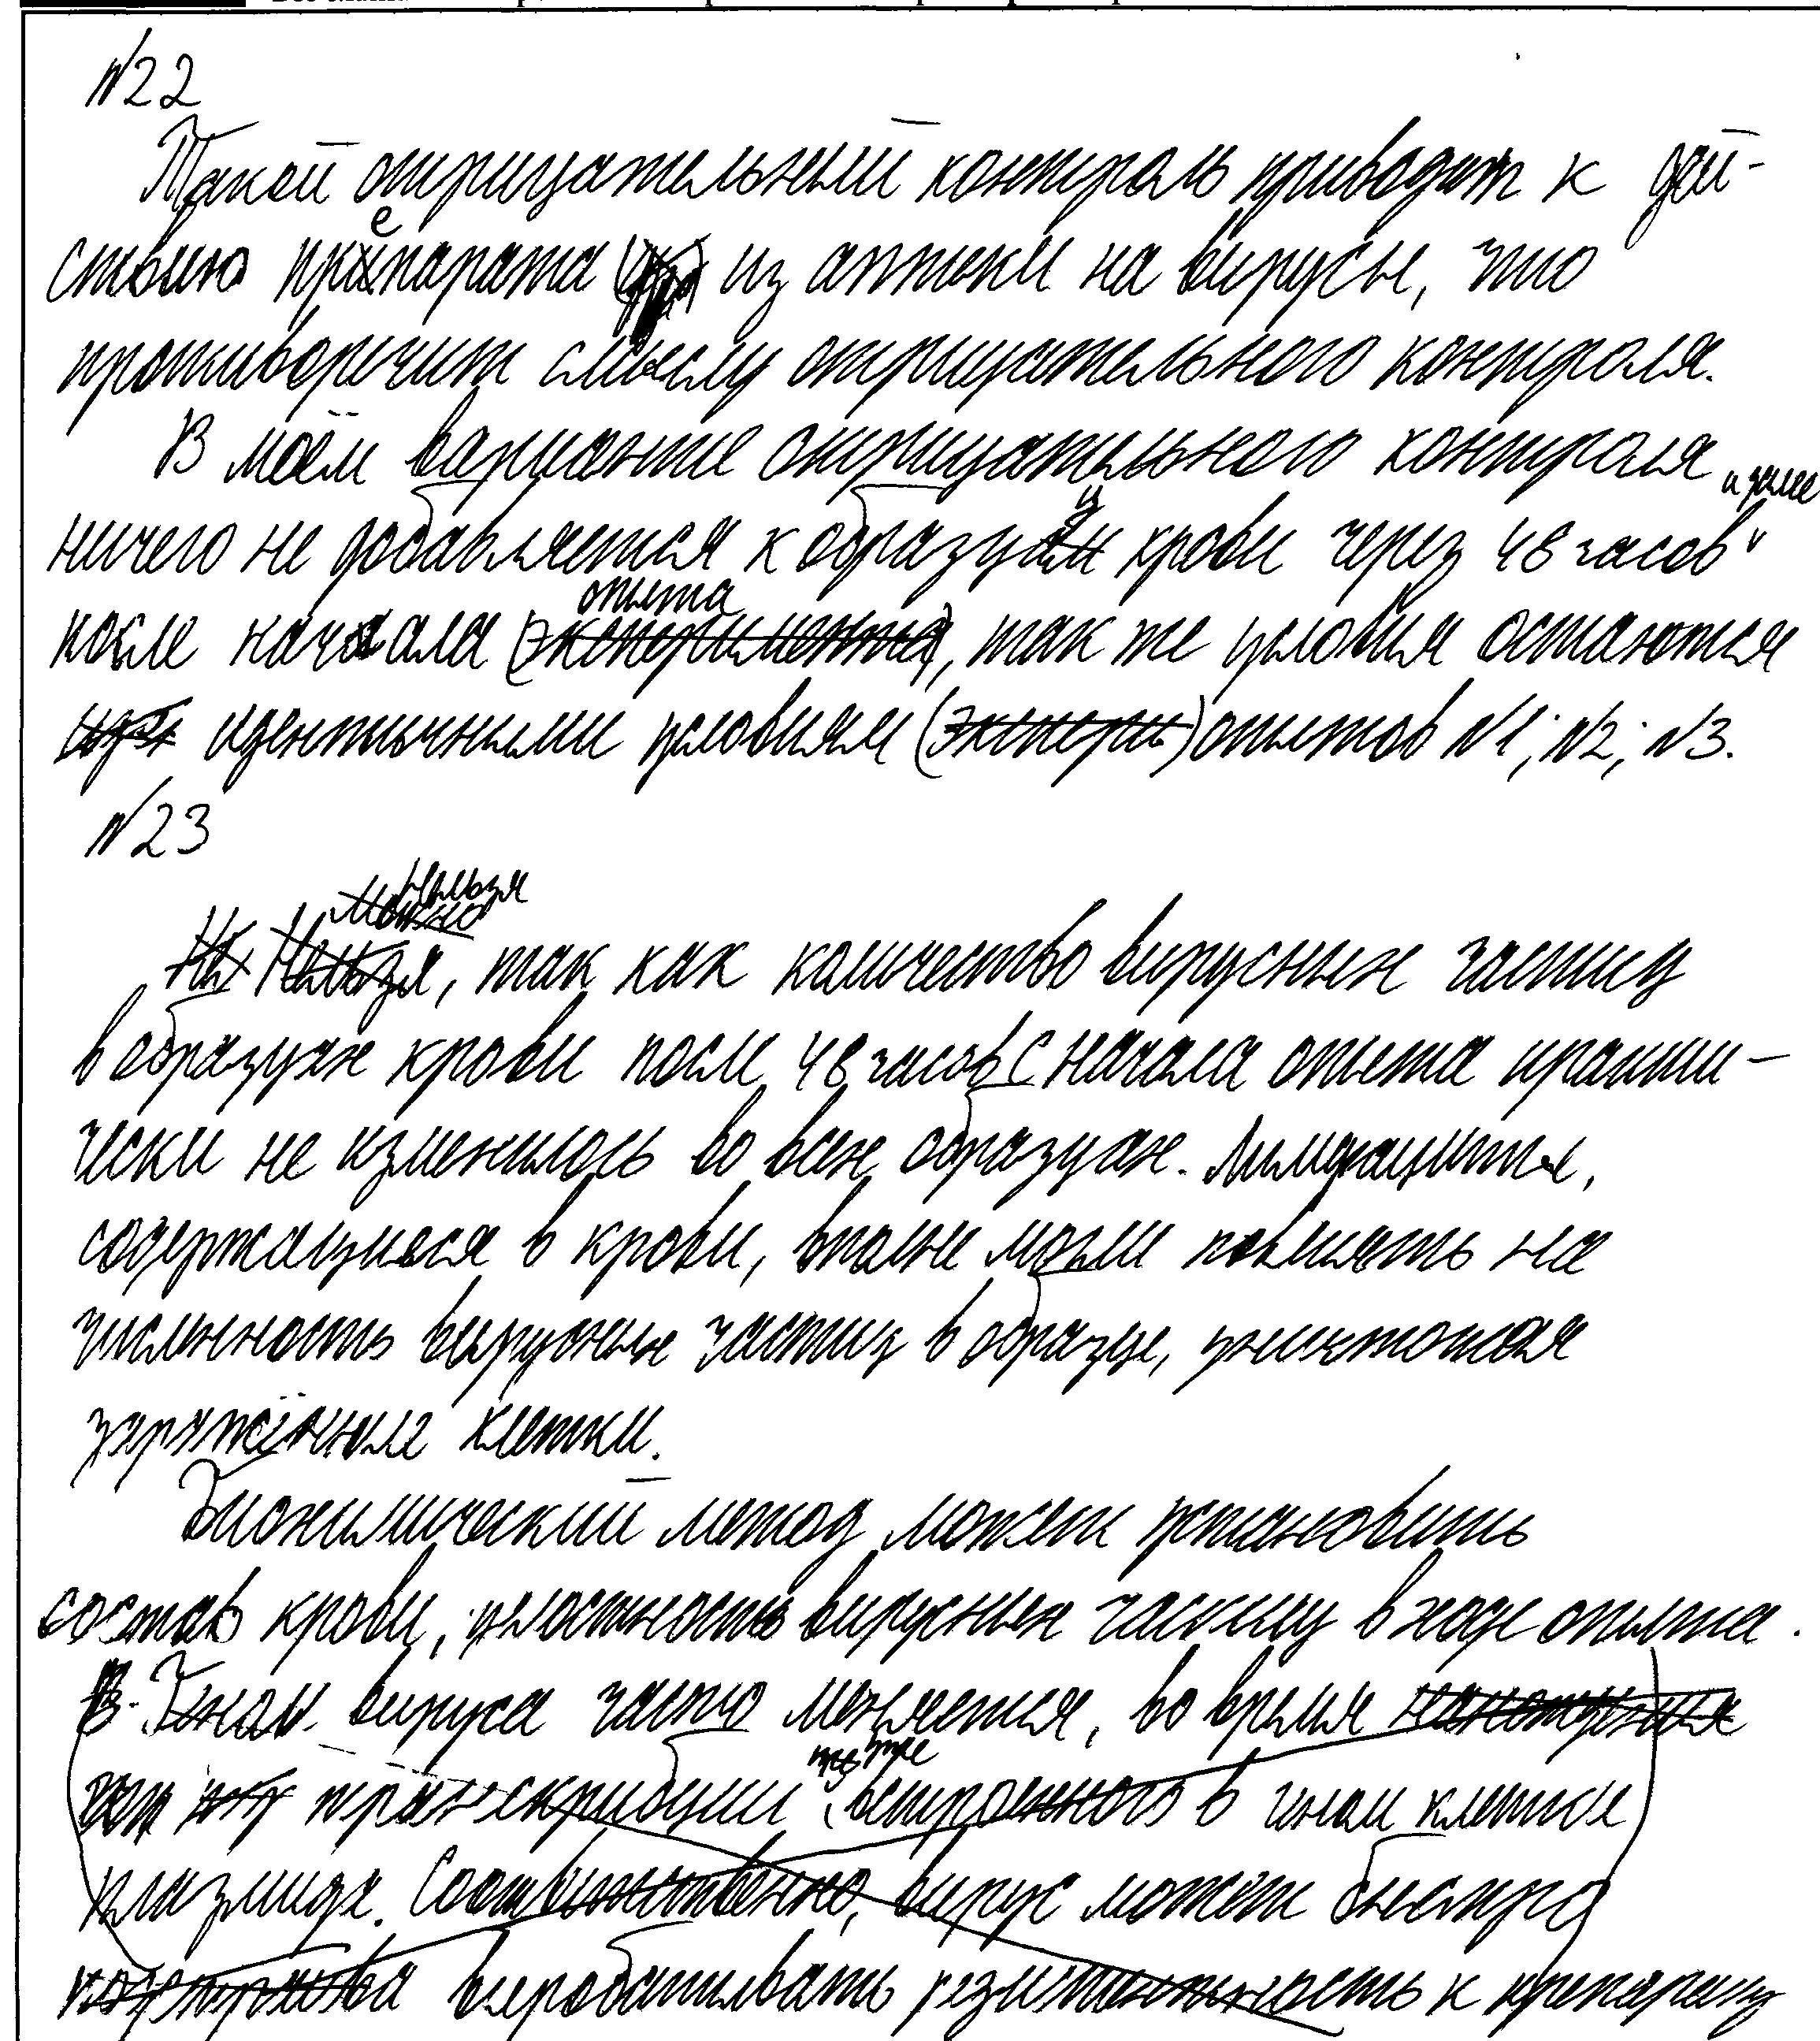 №22
Такой отрицательный контроль приводит к дей-
ствию препарата из аптеки на вирусы, что
противоречит смыслу отрицательного контроля.
В моём варианте отрицательного контроля
ничего не добавляется к образцу крови через 48 часов и далее
после начала опыта, так же условия остаются
идентичными условиям опытов №1; №2; №3.
№23
Нельзя, так как количество вирусных частиц
в образцах крови после 48 часов с начала опыта практи-
чески не изменилось во всех образцах. Лимфоциты,
содержащиеся в крови, вполне могли повлиять на
численность вирусных частиц в образце, уничтожая
заражённые клетки.
Биохимический метод может установить
состав крови, целостность вирусных частиц в ходе опыта.
Геном вируса часто меняется, во время
транскрибции встроенного в геном клетки
плазмида. Соответственно, вирус может быстро
вырабатывать резистентность к препарату